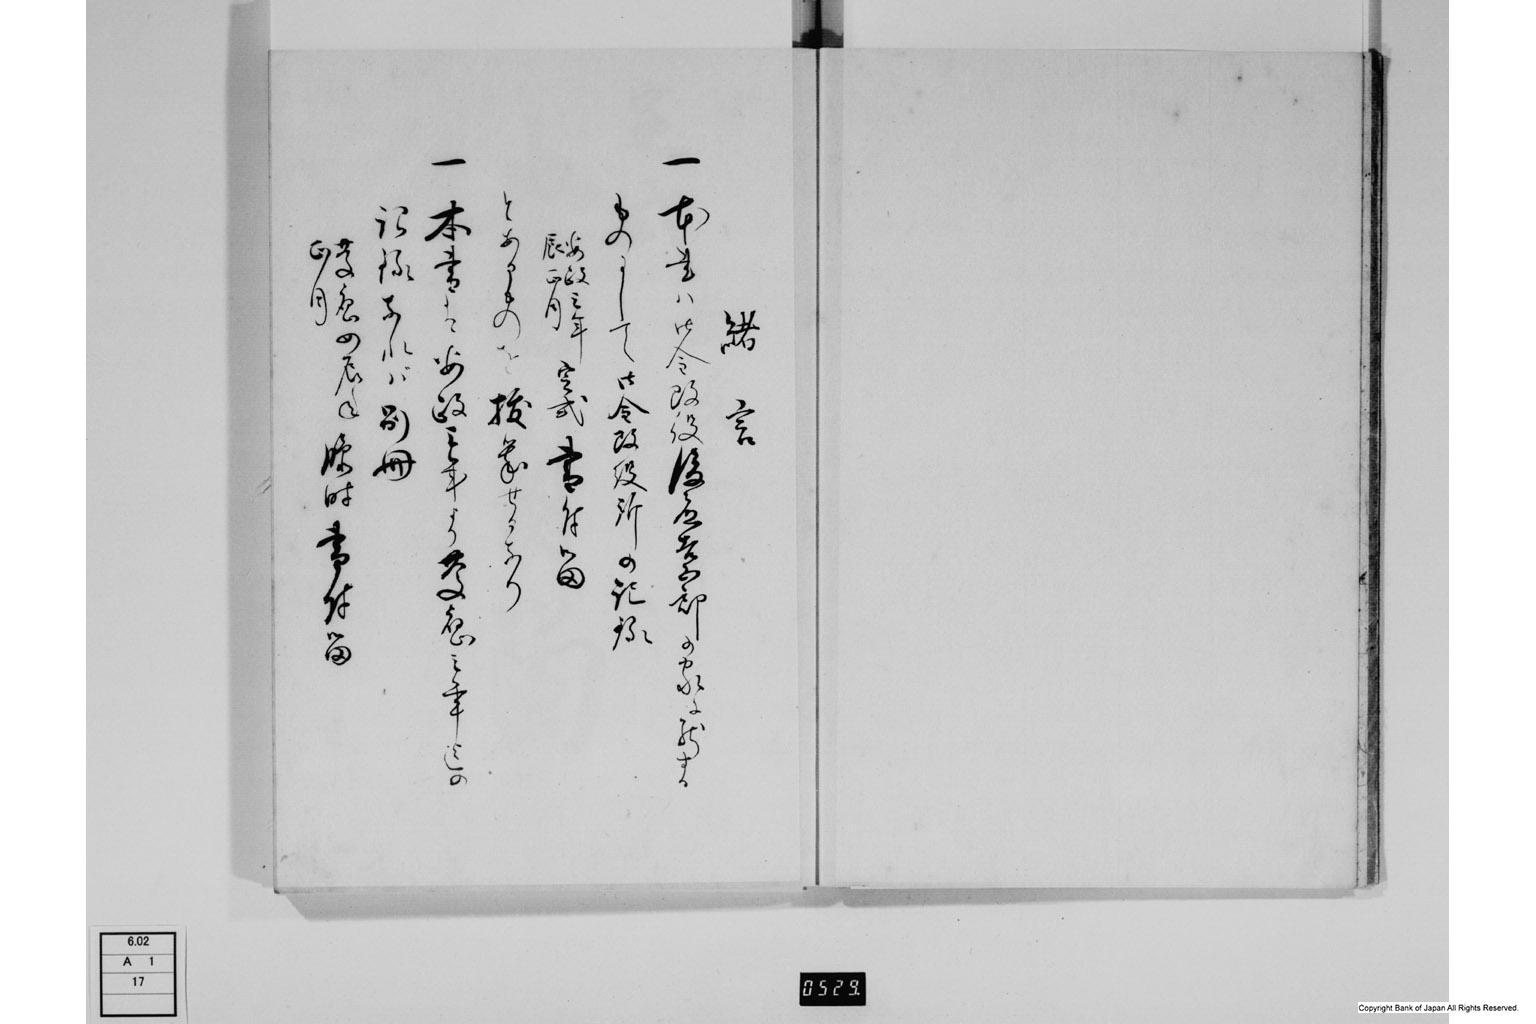 緒言
一 本書ハ御金改役後藤吉五郎の家に蔵する
ものにして御金改役所の記録
安政三年
辰正月
定式書付留
とあるものを抜萃せるなり
一 本書は安政三年より慶應三年迄の
記録なれバ別冊
慶應四辰年
正月
臨時書付留
6.02
A 1
17
0529.
Copyright Bank of Japan All Rights Reserved.